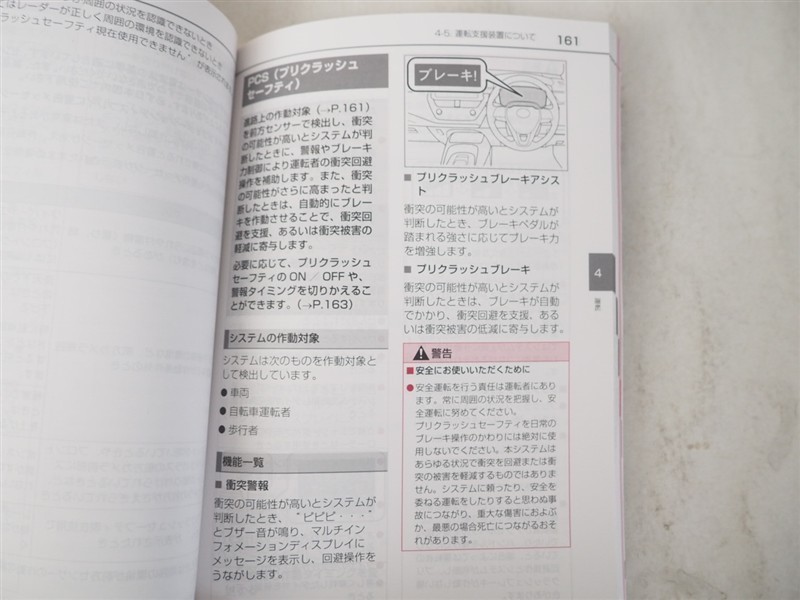 の状況を認識できないとき
はレーダーが正しく周囲の環境を認識できないとき
ラッシュセーフティ現在使用できません”が表示
4-5. 運転支援装置について
161
PCS（プリクラッシュ
セーフティ）
進路上の作動対象（→P.161）
を前方センサーで検出し、衝突
の可能性が高いとシステムが判
断したときに、警報やブレーキ
力制御により運転者の衝突回避
操作を補助します。また、衝突
の可能性がさらに高まったと判
断したときは、自動的にブレー
キを作動させることで、衝突回
避を支援、あるいは衝突被害の
軽減に寄与します。
必要に応じて、プリクラッシュ
セーフティの ON ／ OFF や、
警報タイミングを切りかえるこ
とができます。（→P.163）
システムの作動対象
システムは次のものを作動対象と
して検出しています。
● 車両
● 自転車運転者
● 歩行者
機能一覧
■ 衝突警報
衝突の可能性が高いとシステムが
判断したとき、“ピピピ・・・”
とブザー音が鳴り、マルチイン
フォメーションディスプレイに
メッセージを表示し、回避操作を
うながします。
ブレーキ!
■ プリクラッシュブレーキアシス
ト
衝突の可能性が高いとシステムが
判断したとき、ブレーキペダルが
踏まれる強さに応じてブレーキ力
を増強します。
■ プリクラッシュブレーキ
衝突の可能性が高いとシステムが
判断したときは、ブレーキが自動
でかかり、衝突回避を支援、ある
いは衝突被害の低減に寄与します。
警告
■ 安全にお使いいただくために
● 安全運転を行う責任は運転者にあり
ます。常に周囲の状況を把握し、安
全運転に努めてください。
プリクラッシュセーフティを日常の
ブレーキ操作のかわりには絶対に使
用しないでください。本システムは
あらゆる状況で衝突を回避または衝
突の被害を軽減するものではありま
せん。システムに頼ったり、安全を
委ねる運転をしたりすると思わぬ事
故につながり、重大な傷害におよぶ
か、最悪の場合死亡につながるおそ
れがあります。
4
運転